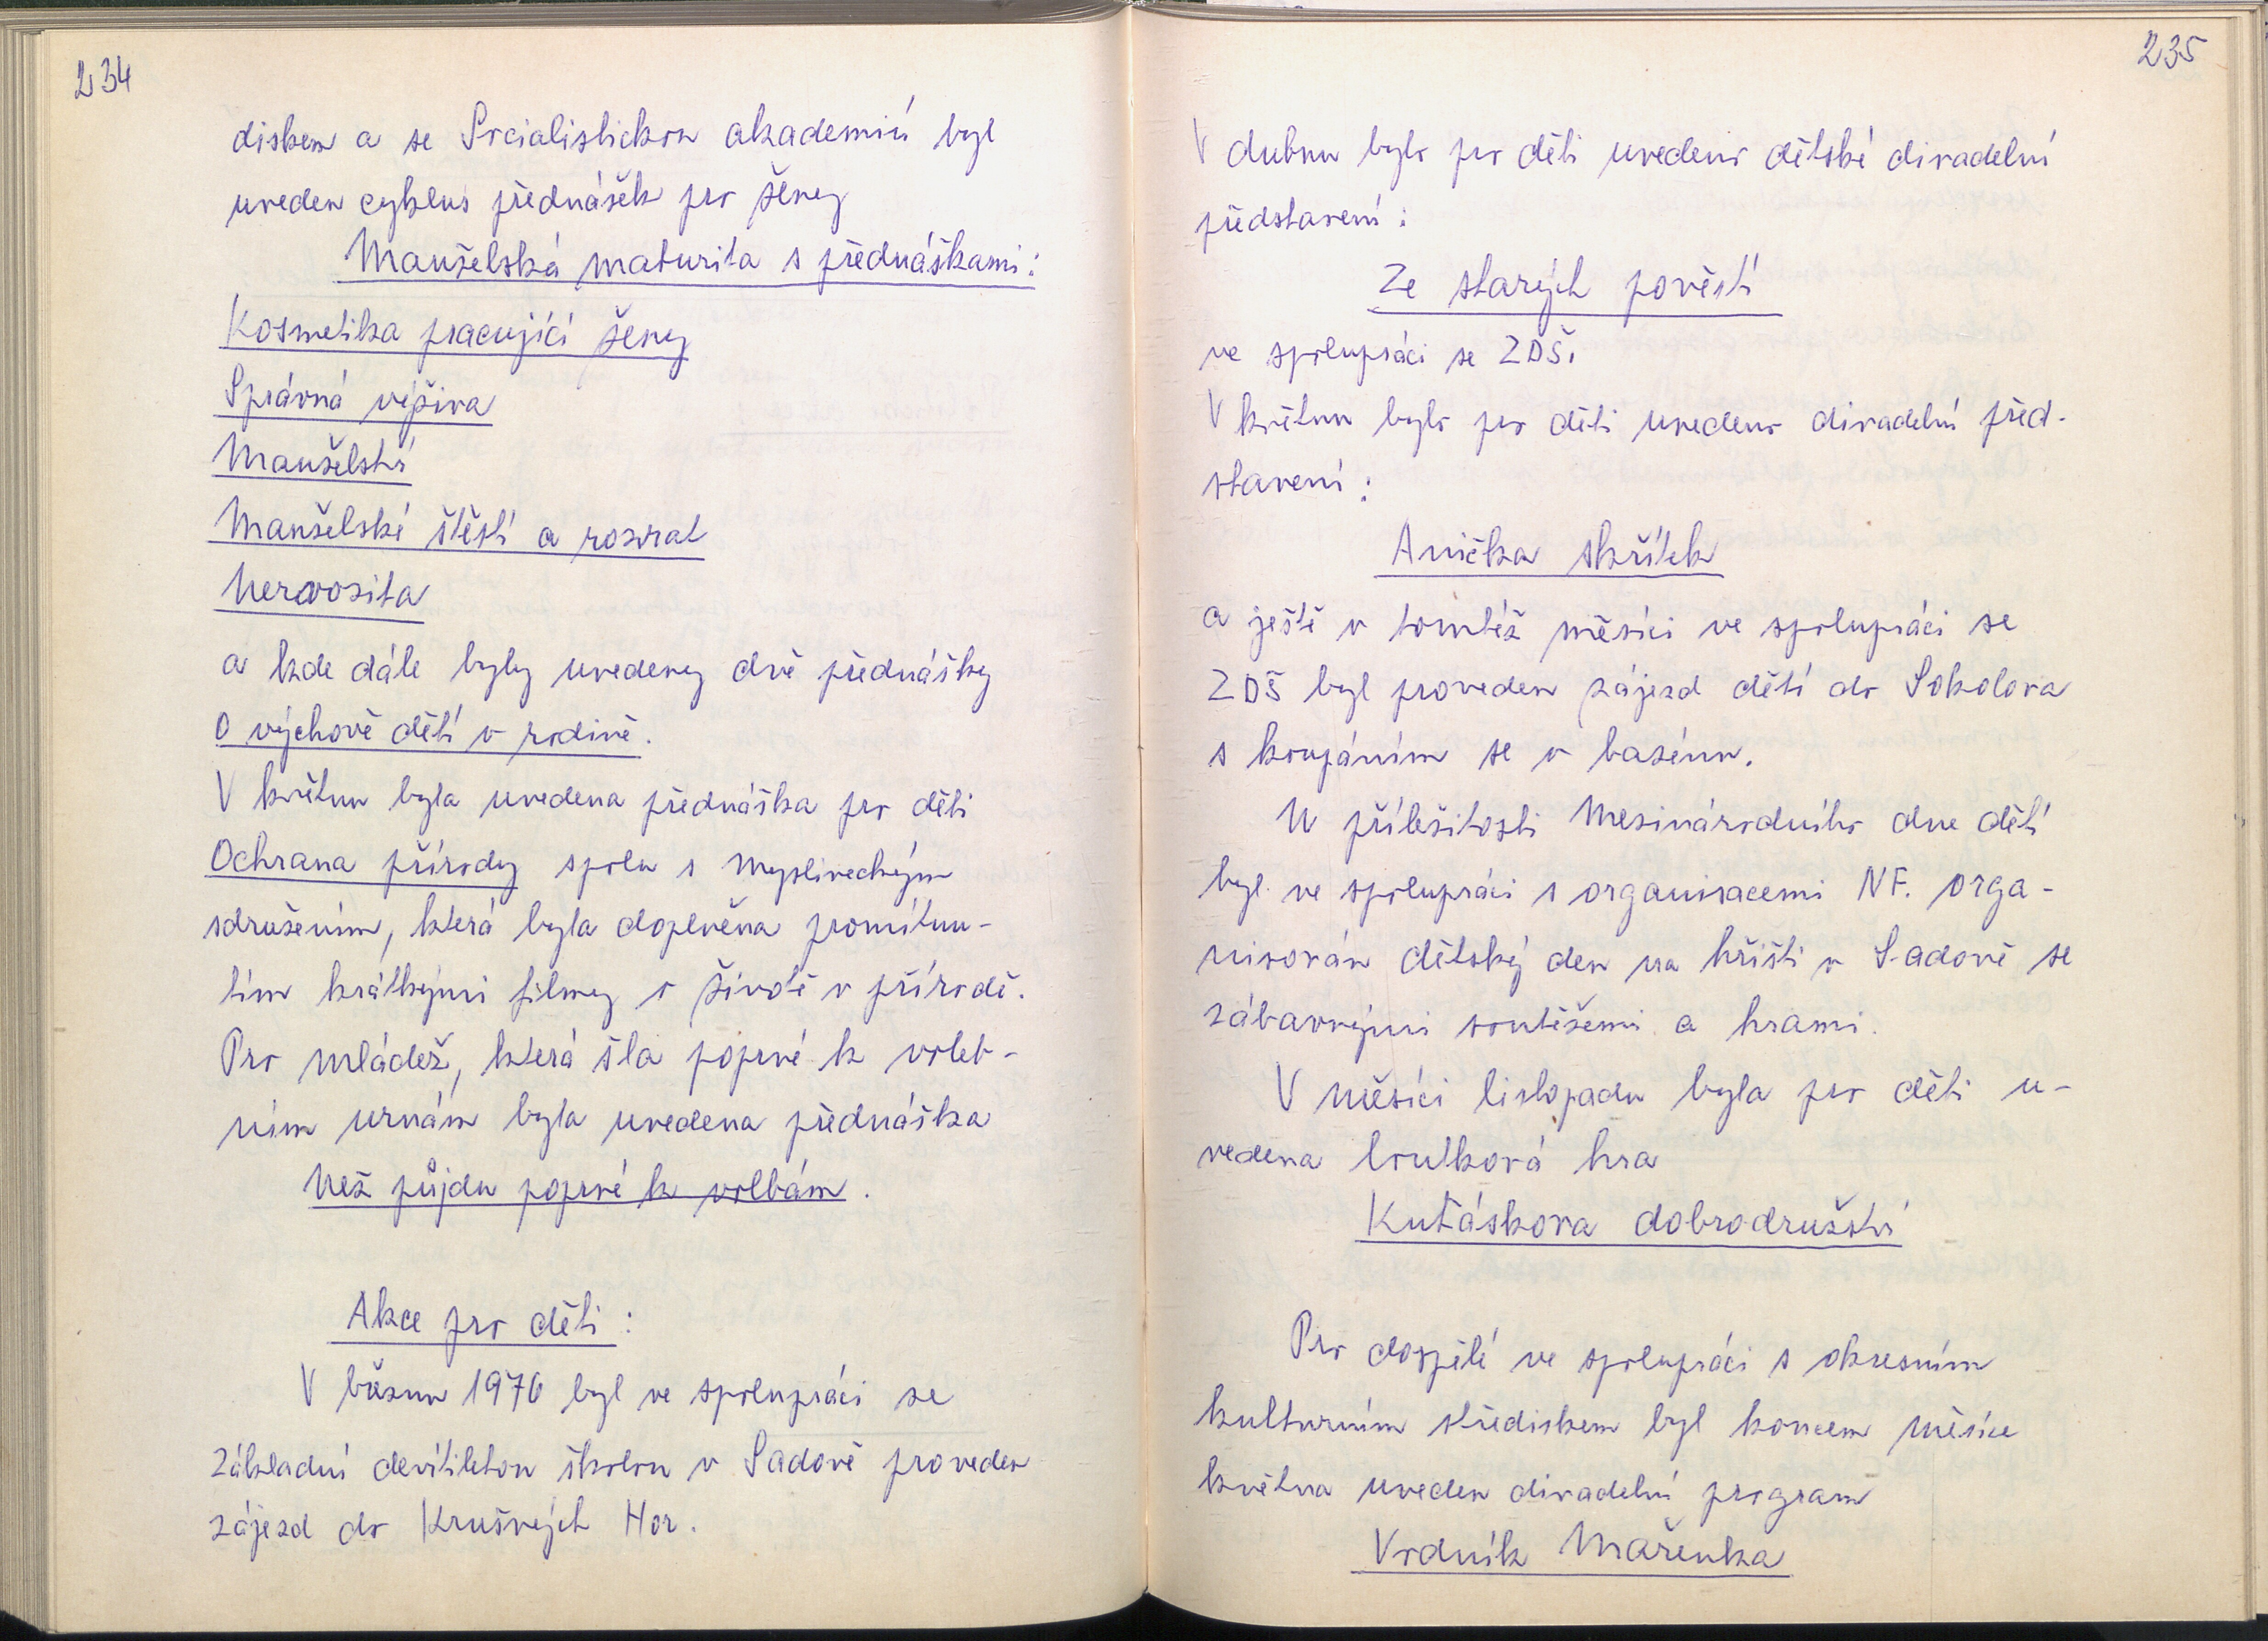 234
diskem a se Socialistickou akademií byl
uveden cyklus přednášek pro ženy
Manželská maturita s přednáškami:
Kosmetika pracující ženy
Správná výživa
Manželství
Manželské štěstí a rozvrat
Nervosita
a kde dále byly uvedeny dvě přednášky
O výchově dětí v rodině.
V květnu byla uvedena přednáška pro děti
Ochrana přírody spolu s Mysliveckým
sdružením, která byla doplněna promítnu-
tím krátkými filmy o životě v přírodě.
Pro mládež, která šla poprvé k voleb-
ním urnám byla uvedena přednáška
Než půjdu poprvé k volbám.
Akce pro děti:
V březnu 1976 byl ve spolupráci se
základní devítiletou školou v Sadově proveden
zájezd do Krušných Hor.
235
V dubnu bylo pro děti uvedeno dětské divadelní
představení:
Ze starých pověstí
ve spolupráci se ZDŠ.
V květnu bylo pro děti uvedeno divadelní před-
stavení:
Anička skřítek
a ještě v tomtéž měsíci ve spolupráci se
ZDŠ byl proveden zájezd dětí do Sokolova
s koupáním se v bazénu.
U příležitosti Mezinárodního dne dětí
byl ve spolupráci s organisacemi NF. orga-
nisován dětský den na hřišti v Sadově se
zábavnými soutěžemi a hrami.
V měsíci listopadu byla pro děti u-
vedena loutková hra
Kuťáskova dobrodružství
Pro dospělé ve spolupráci s okresním
kulturním střediskem byl koncem měsíce
května uveden divadelní program
Vodník Mařenka